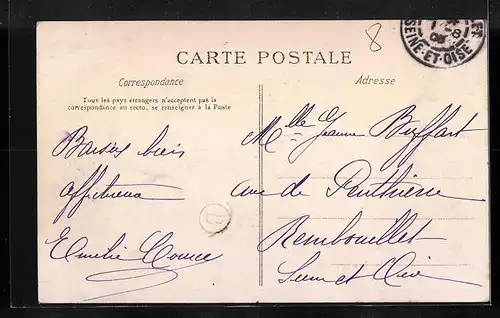 8
SEINE-ET-OISE
CARTE POSTALE
Correspondance
Adresse
Tous les pays étrangers n'acceptent pas la
correspondance au recto, se renseigner à la Poste
Melle Jeanne Buffart
rue de Penthièvre
Rembouillet
Seine et Oise
Baisers bien
affectueux
Emilie